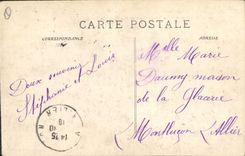 CARTE POSTALE
CORRESPONDANCE
ADRESSE
Doux souvenir
Stéphanie et Louis
Melle Marie
Daumy maison
de la Glacière
Montluçon Allier
14-15
18